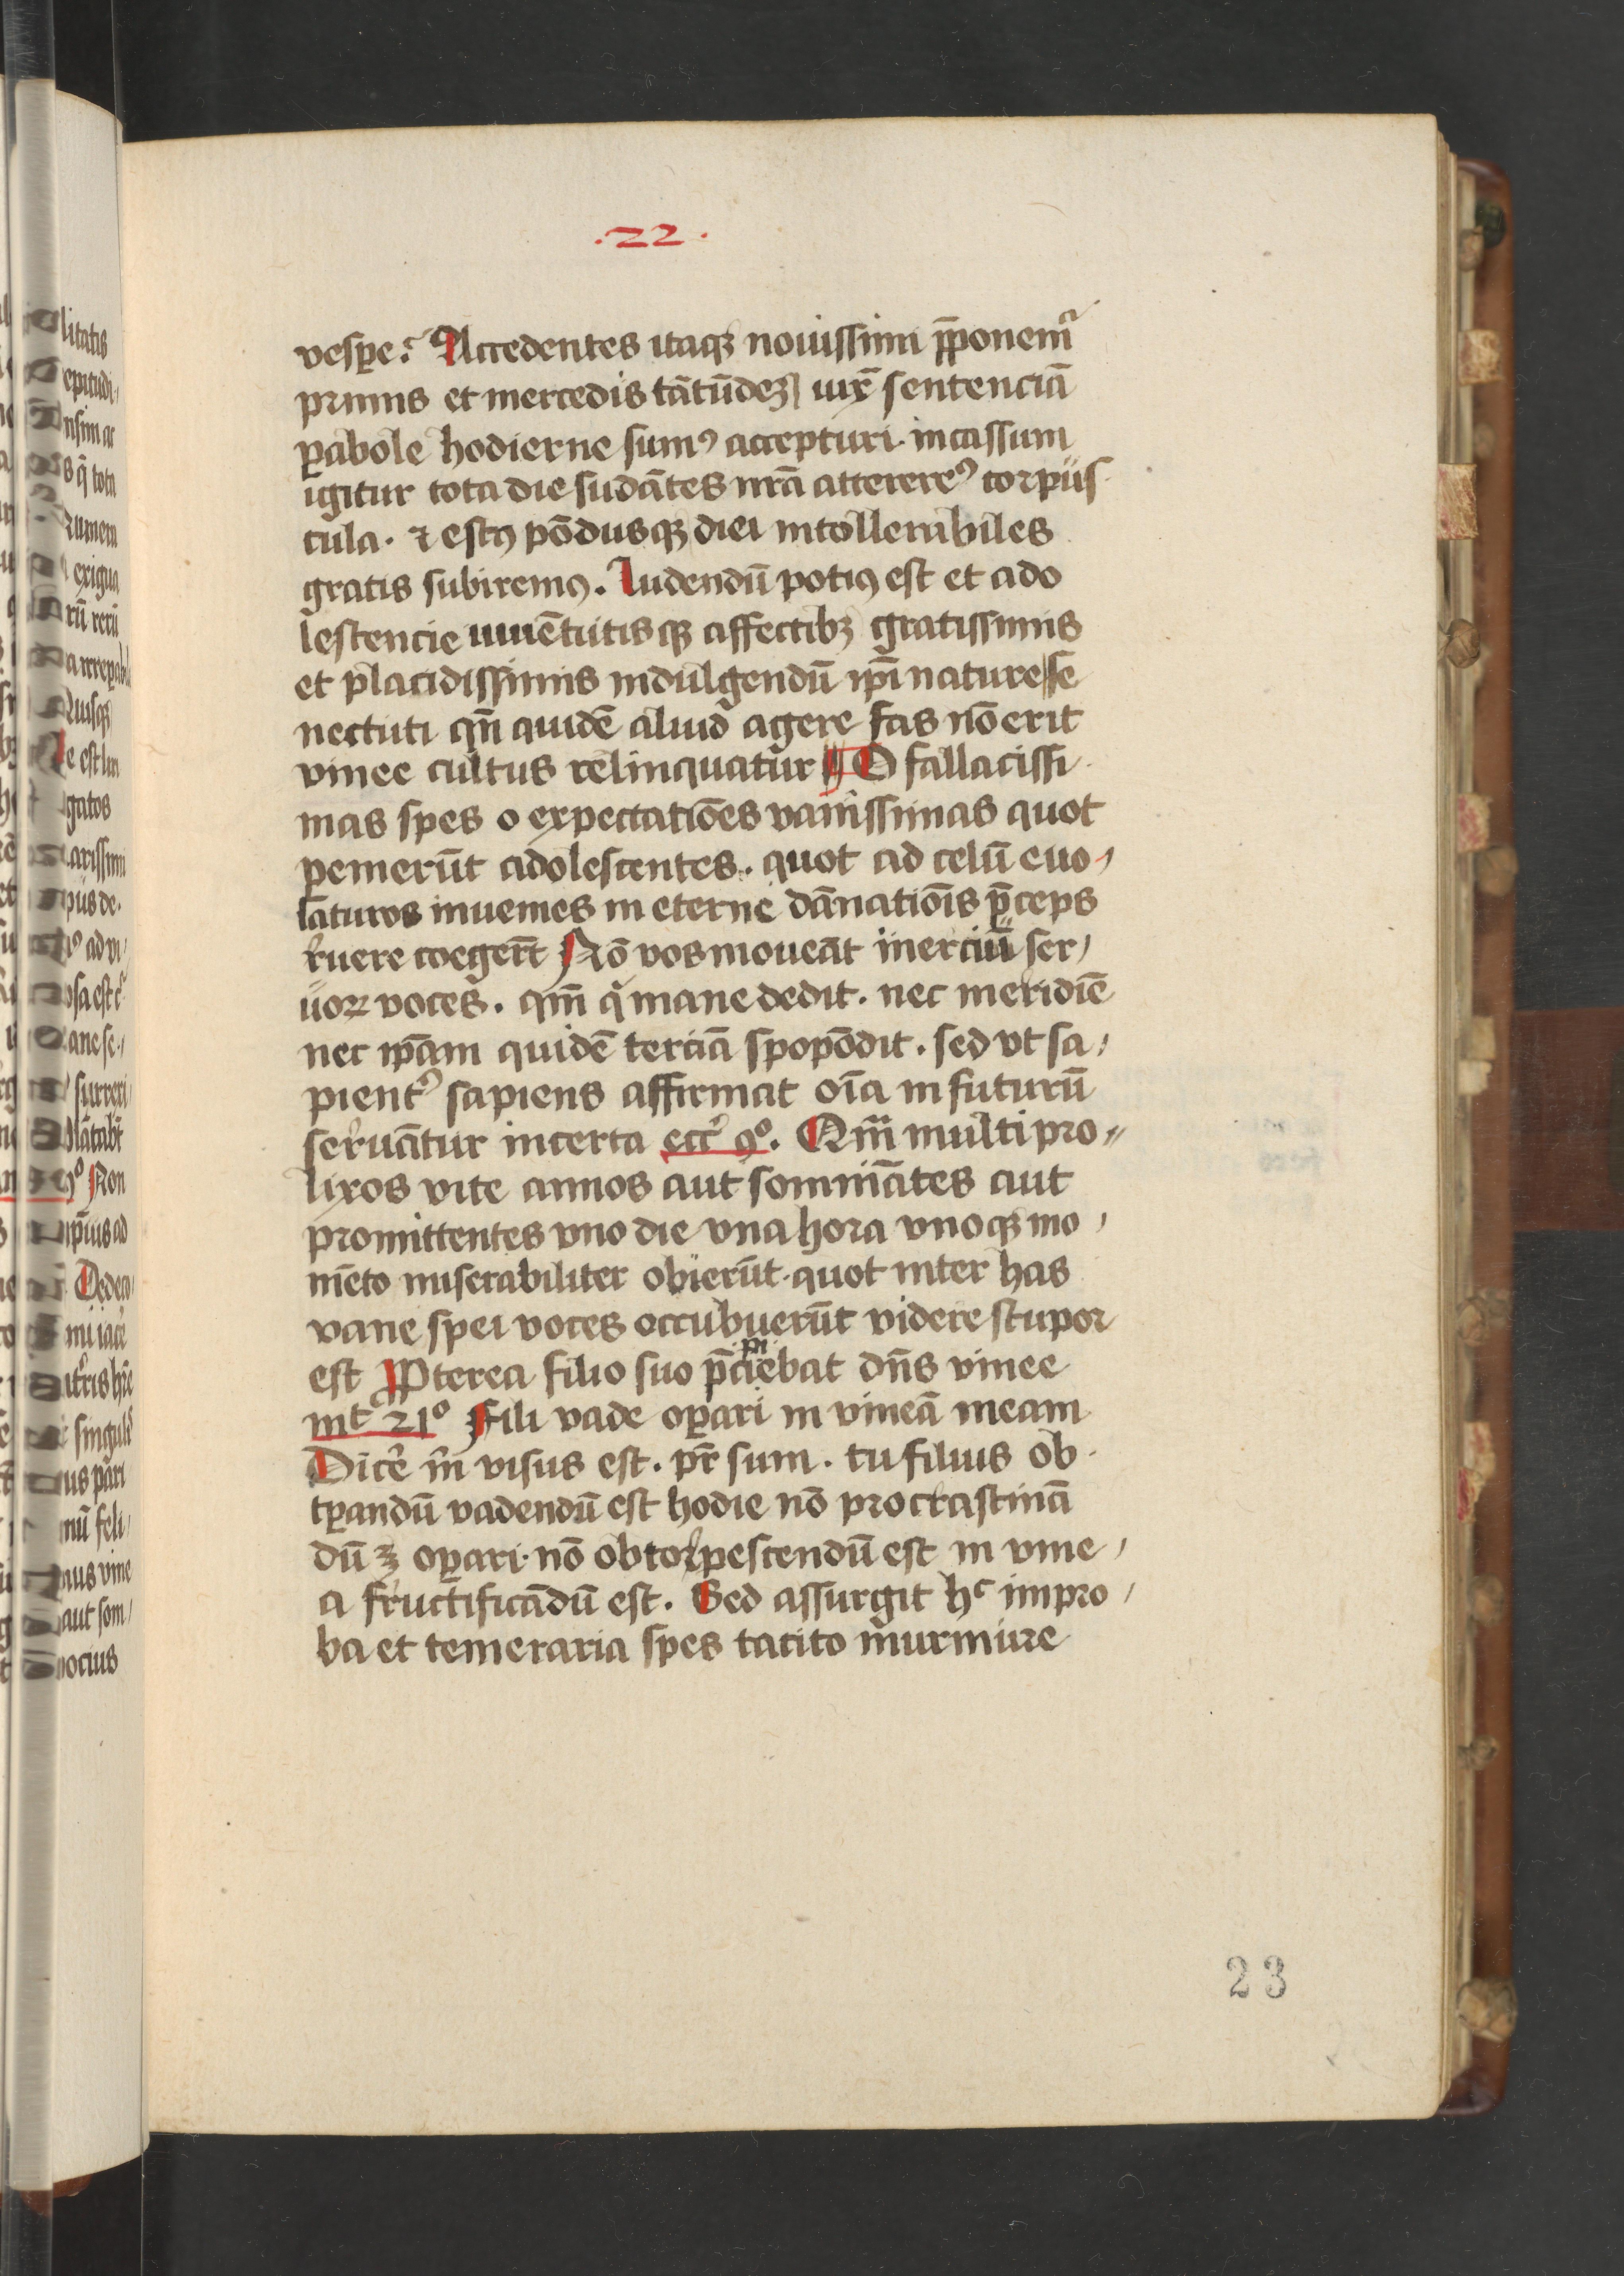 .22.
vesꝑe. Accedentes itaqꝫ nouissimi p̄ponem᷑
primis et mercedis tātūdeꝫ iux̄ sentenciā
ꝑabole hodierne sumꝰ accepturi. incassum
igitur tota die sudātes nr̄a attereremꝰ corpus
cula. ⁊ estꝰ pōdusqꝫ diei intollerabiles
gratis subiremꝰ. Ludendū potiꝰ est et ado
lescencie iuuētutisqꝫ affectibꝫ gratissimis
et placidissimis indulgendū ip̄i nature se
nectuti qn̄ quidē aliud agere fas nō erit
vinee cultus relinquatur ¶ O fallacissi
mas spes o expectatiōes vanissimas quot
ꝑemerūt adolescentes. quot ad celū euo-
laturos inuenies in eterne dānatiōis p̄ceps
ruere coegerūt Nō vos moueāt inerciū ser/
uoꝝ voces. qm̄ q mane dedit. nec meridiē
nec ip̄am quidē terciā spopōdit. sed vt sa/
pientꝰ sapiens affirmat oīa in futurū
seruātur incerta ecc̄ 9º. Qm̄ multi pro//
lixos vite annos aut somniātes aut
promittentes vno die vna hora vnoqꝫ mo/
mēto miserabiliter obierūt. quot inter has
vane spei voces occubuerūt videre stupor
est Ꝓpterea filio suo p̄cipiebat dn̄s vinee
mt 21º Fili vade oꝑari in vineā meam
Dicē m̄ visus est. pr̄ sum. tu filius ob
tꝑandū vadendū est hodie nō procrastinā
dū ꝫ oꝑari. nō obtorpescendū est in vine/
a fructificādū est. Sed assurgit hᶜ impro/
ba et temeraria spes tacito murmure
23